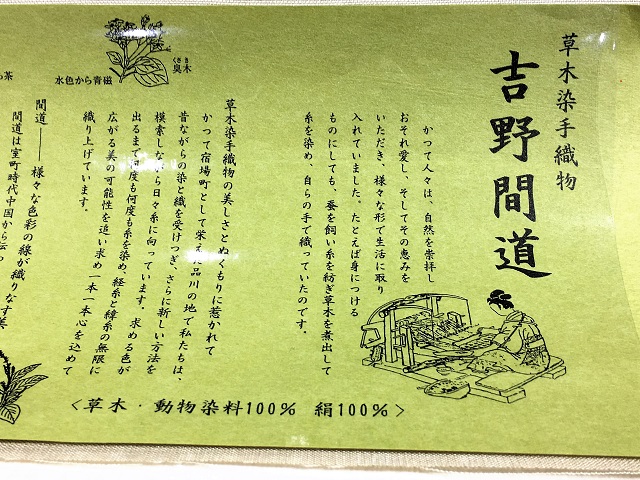 草木染手織物
吉野間道
かつて人々は、自然を崇拝し
おそれ愛し、そしてその恵みを
いただき、様々な形で生活に取り
入れていました。たとえば身につける
ものにしても、蚕を飼い糸を紡ぎ草木を煮出して
糸を染め、自らの手で織っていたのです。
草木染手織物の美しさとぬくもりに惹かれて
かつて宿場町として栄えた品川の地で私たちは、
昔ながらの染と織を受けつぎ、さらに新しい方法を
模索しながら日々糸に向っています。求める色が
出るまで何度も何度も糸を染め、経糸と緯糸の無限に
広がる美の可能性を追い求め一本一本心を込めて
織り上げています。
間道――様々な色彩の線が織りなす美
間道は室町時代中国から伝っ
くさぎ
臭木
水色から青磁
茶
<草木・動物染料100% 絹100%>